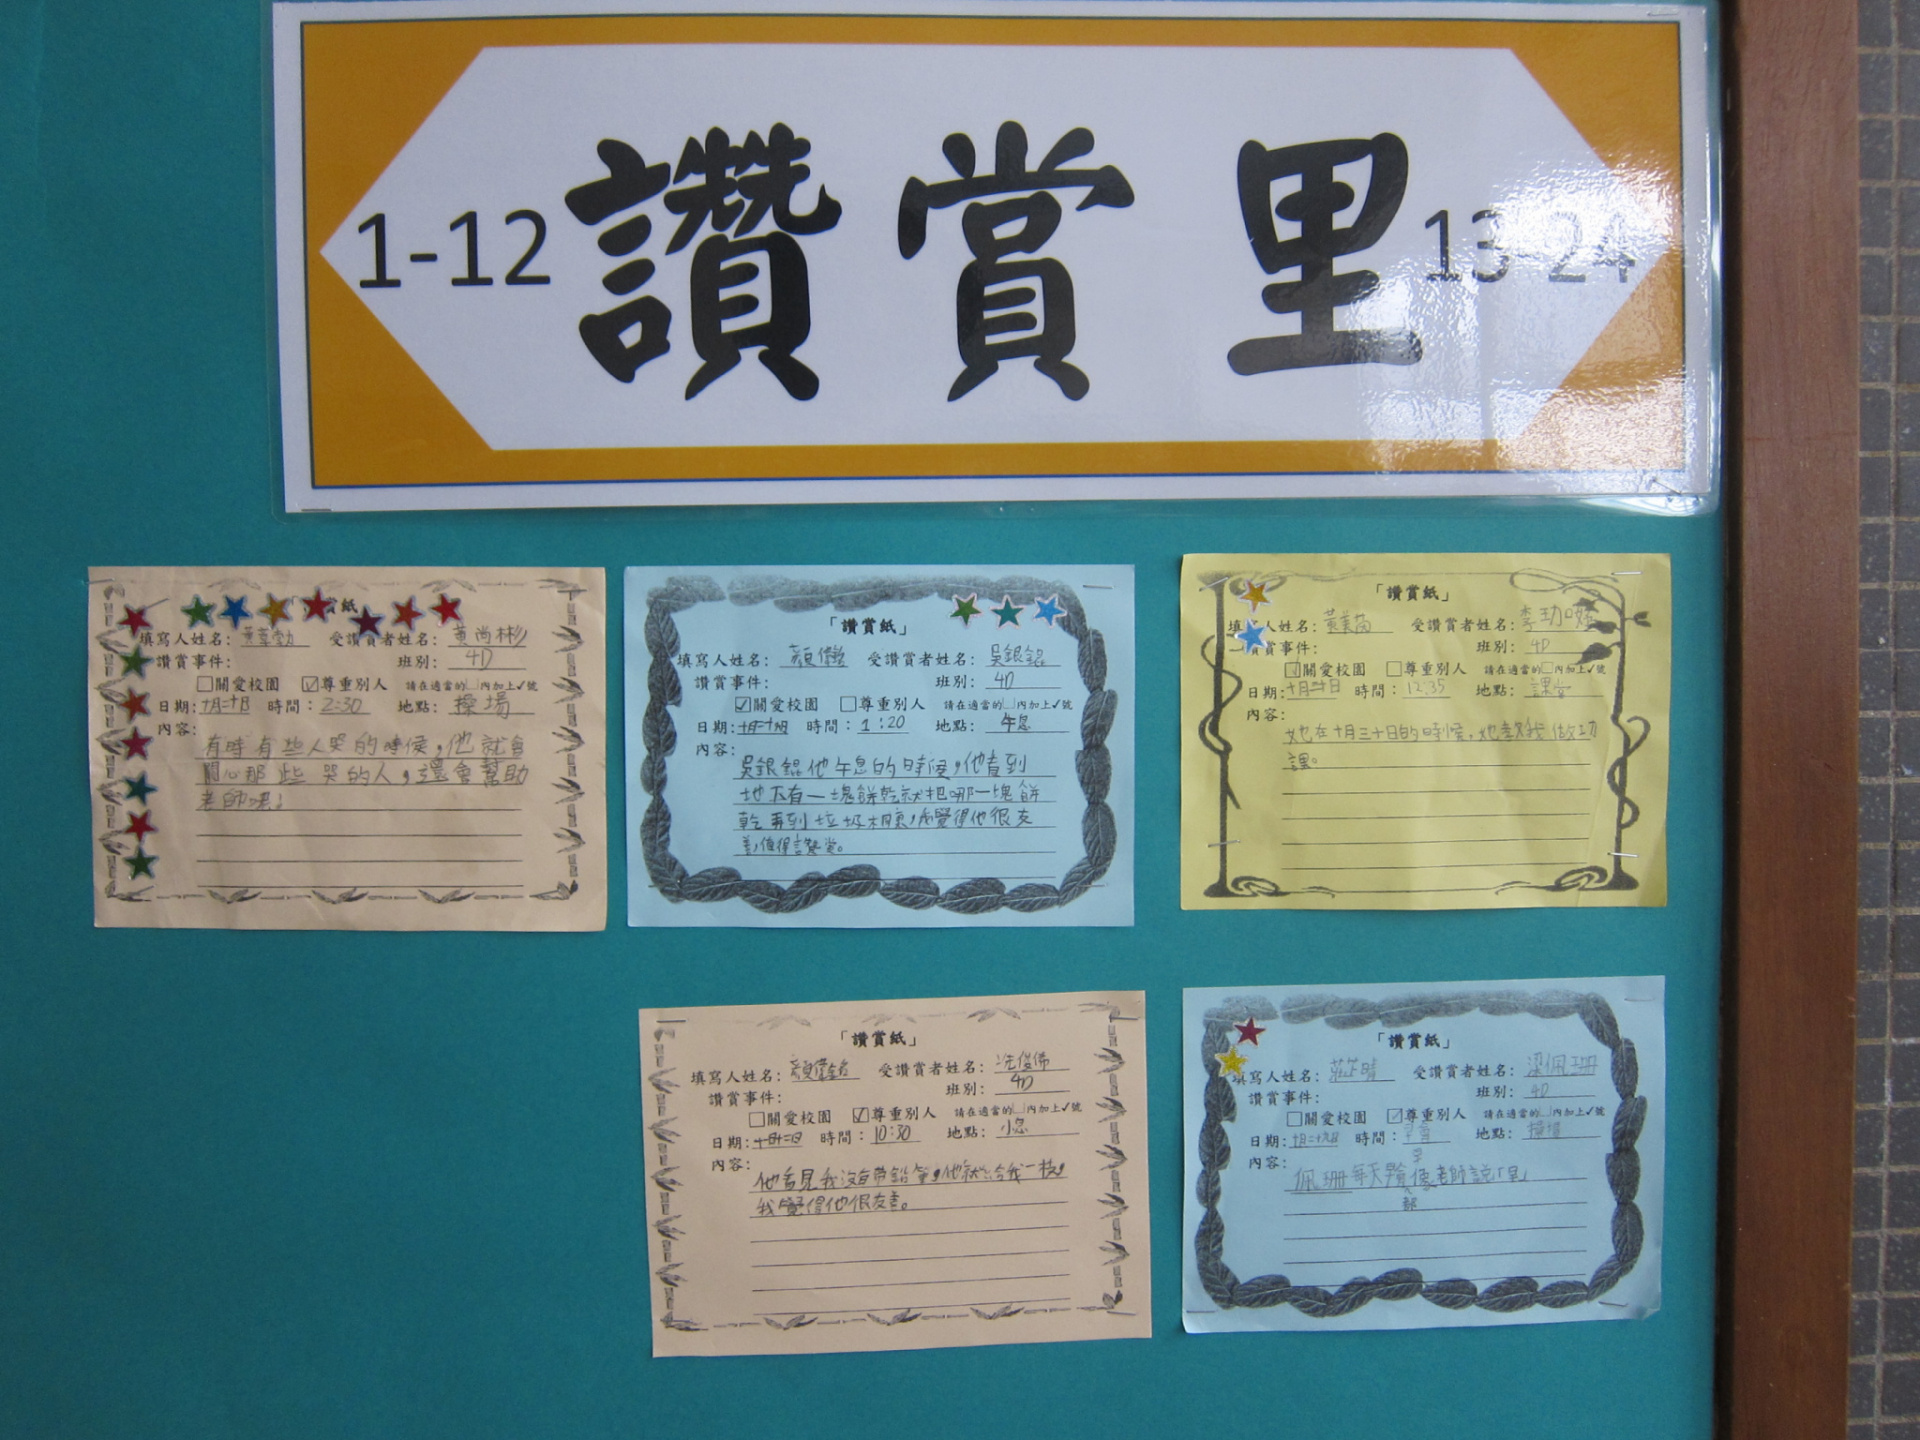 1-12 讚賞里 13-24
填寫人姓名： 受讚賞者姓名：黃尚彬
讚賞事件： 班別：4D
□關愛校園 ☑尊重別人 請在適當的□內加上✓號
日期：十月二十日 時間：2:30 地點：操場
內容：
有時有些人哭的時侯，他就會
關心那些哭的人，還會幫助
老師呢。
「讚賞紙」
填寫人姓名： 受讚賞者姓名：吳銀鋁
讚賞事件： 班別：4D
☑關愛校園 □尊重別人 請在適當的□內加上✓號
日期： 時間：1:20 地點：午息
內容：
吳銀鋁他午息的時侯，他看到
地下有一塊餅乾就把哪一塊餅
乾再到垃圾桶裏，我覺得他很友
善，值得讚賞。
「讚賞紙」
填寫人姓名：黃美茵 受讚賞者姓名：
讚賞事件： 班別：4D
☑關愛校園 □尊重別人 請在適當的□內加上✓號
日期：十月三十日 時間：12:35 地點：課堂
內容：
她在十月三十日的時侯，她教我做功
課。
「讚賞紙」
填寫人姓名： 受讚賞者姓名：冼俊佛
讚賞事件： 班別：4D
□關愛校園 ☑尊重別人 請在適當的□內加上✓號
日期： 時間：10:30 地點：小息
內容：
他看見我沒有帶鉛筆，他就給我一枝，
我覺得他很友善。
「讚賞紙」
填寫人姓名： 受讚賞者姓名：梁佩珊
讚賞事件： 班別：4D
□關愛校園 ☑尊重別人 請在適當的□內加上✓號
日期：十月二十九日 時間： 地點：操場
內容：
佩珊每天 老師說「早」